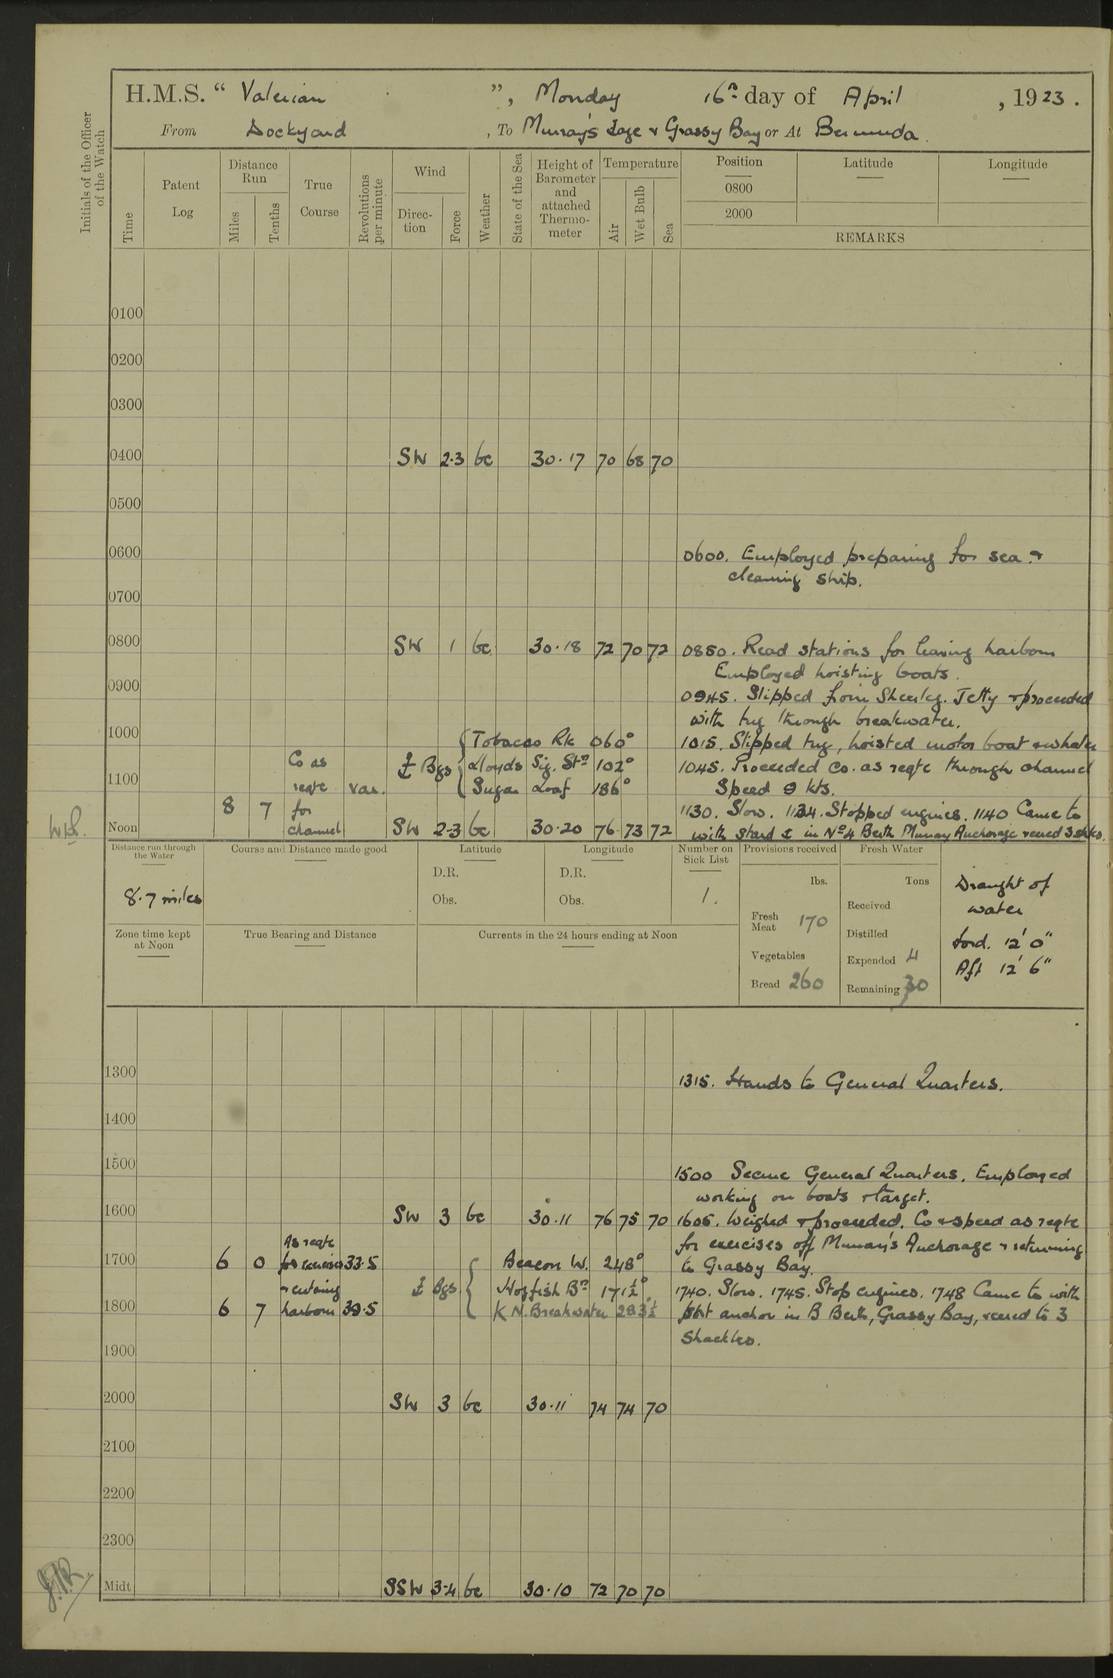 H.M.S. " Valerian ", Monday 16th day of April, 1923.
From Dockyard, To Murray's Ige & Grassy Bay or At Bermuda.
Initials of the Officer of the Watch
Time
Patent Log
Distance Run
Miles
Tenths
True Course
Revolutions per minute
Wind
Direction
Force
Weather
State of the Sea
Height of Barometer and attached Thermometer
Temperature
Air
Wet Bulb
Sea
Position
0800
2000
Latitude
Longitude
REMARKS
0100
0200
0300
0400 SW 2.3 bc 30.17 70 68 70
0500
0600 0600. Employed preparing for sea &
cleaning ship.
0700
0800 SW 1 bc 30.18 72 70 72 0850. Read stations for leaving harbour
Employed hoisting boats.
0900 0945. Slipped from Sheerleg Jetty & proceeded
with tug through breakwater.
1000 Tobacco Rk 060° 1015. Slipped tug, hoisted motor boat & whaler
Co as ⚓ Bgs Lloyds Sig. Stn 102° 1045. Proceeded Co. as reqte through channel
1100 reqte var. Sugar Loaf 186° Speed 9 kts.
8 7 for 1130. Slow. 1134. Stopped engines. 1140 Came to
Noon channel SW 2-3 bc 30.20 76 73 72 with stard ⚓ in No 4 Berth Murray Anchorage veered 3 shks.
Distance run through the Water
8.7 miles
Course and Distance made good
Latitude
D.R.
Obs.
Longitude
D.R.
Obs.
Number on Sick List
1.
Provisions received
lbs.
Fresh Meat 170
Vegetables
Bread 260
Fresh Water
Tons
Received
Distilled
Expended 4
Remaining 30
Draught of
water
Ford. 12' 0"
Aft 12' 6"
Zone time kept at Noon
True Bearing and Distance
Currents in the 24 hours ending at Noon
1300 1315. Hands to General Quarters.
1400
1500 1500 Secure General Quarters. Employed
working on boats & target.
1600 SW 3 bc 30.11 76 75 70 1605. Weighed & proceeded. Co & speed as reqte
As reqte for exercises off Murray's Anchorage & returning
1700 6 0 for exercises 33.5 Beacon W. 248° to Grassy Bay.
& entering ⚓ Bgs. Hogfish Bn 171½° 1740. Slow. 1745. Stop engines. 1748 Came to with
1800 6 7 harbour 39.5 N. Breakwater 283½ port anchor in B Berth, Grassy Bay, veered to 3
shackles.
1900
2000 SW 3 bc 30.11 74 74 70
2100
2200
2300
Midt SSW 3-4 bc 30.10 72 70 70